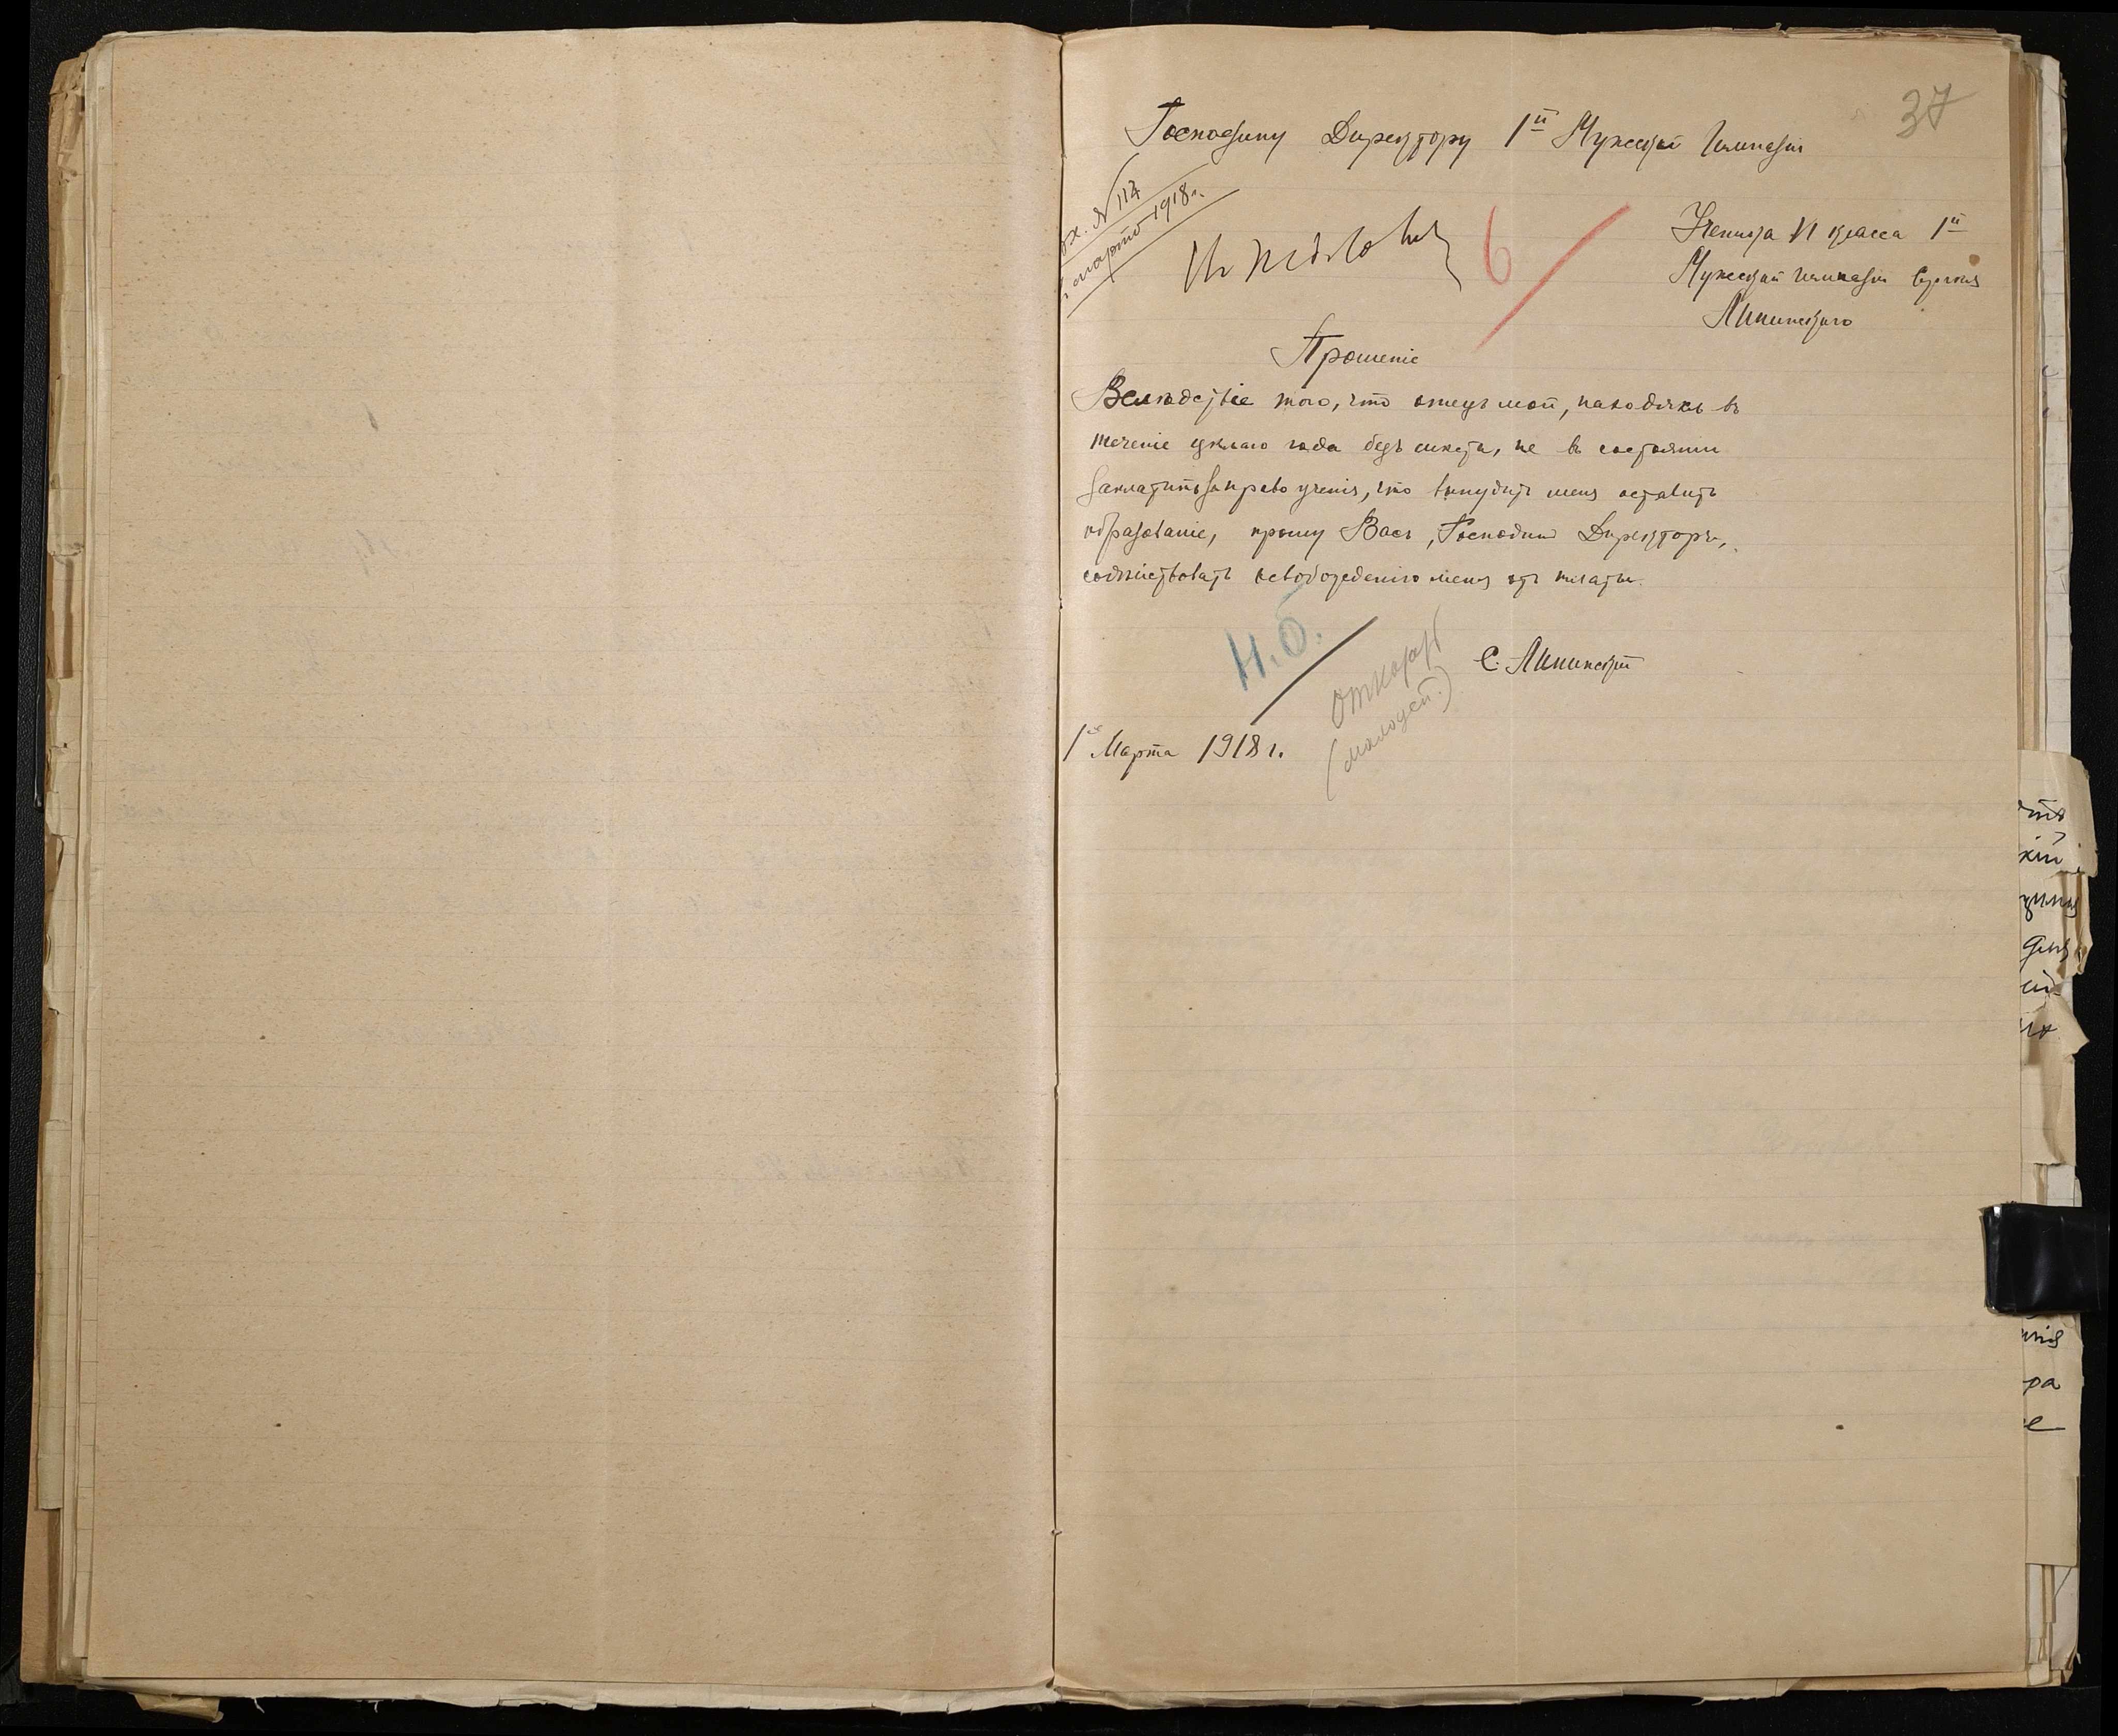 37
Господину Директору 1й Мужской Гимназiи
вх. № 117
1 марта 1918 г.
6
Ученика VI класса 1й
Мужской гимназiи Сергѣя
Липинскаго
Прошенiе
Вслѣдствiе того, что отецъ мой, находясь въ
теченiе цѣлаго года безъ мѣста, не въ состоянiи
заплатить за право ученiя, что вынудитъ меня оставить
образованiе, прошу Васъ, Господинъ Директоръ,
содѣйствовать освобожденiю меня отъ платы.
Н.б.
С. Липинскiй
отказать
1го Марта 1918 г.
кiй
ра
е